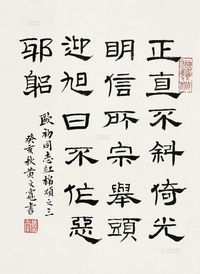 正直不斜倚光
明信所宗舉頭
迎旭日不作惡
邪躬
歐初同志紅棉頌之三
癸亥秋黃文寬書